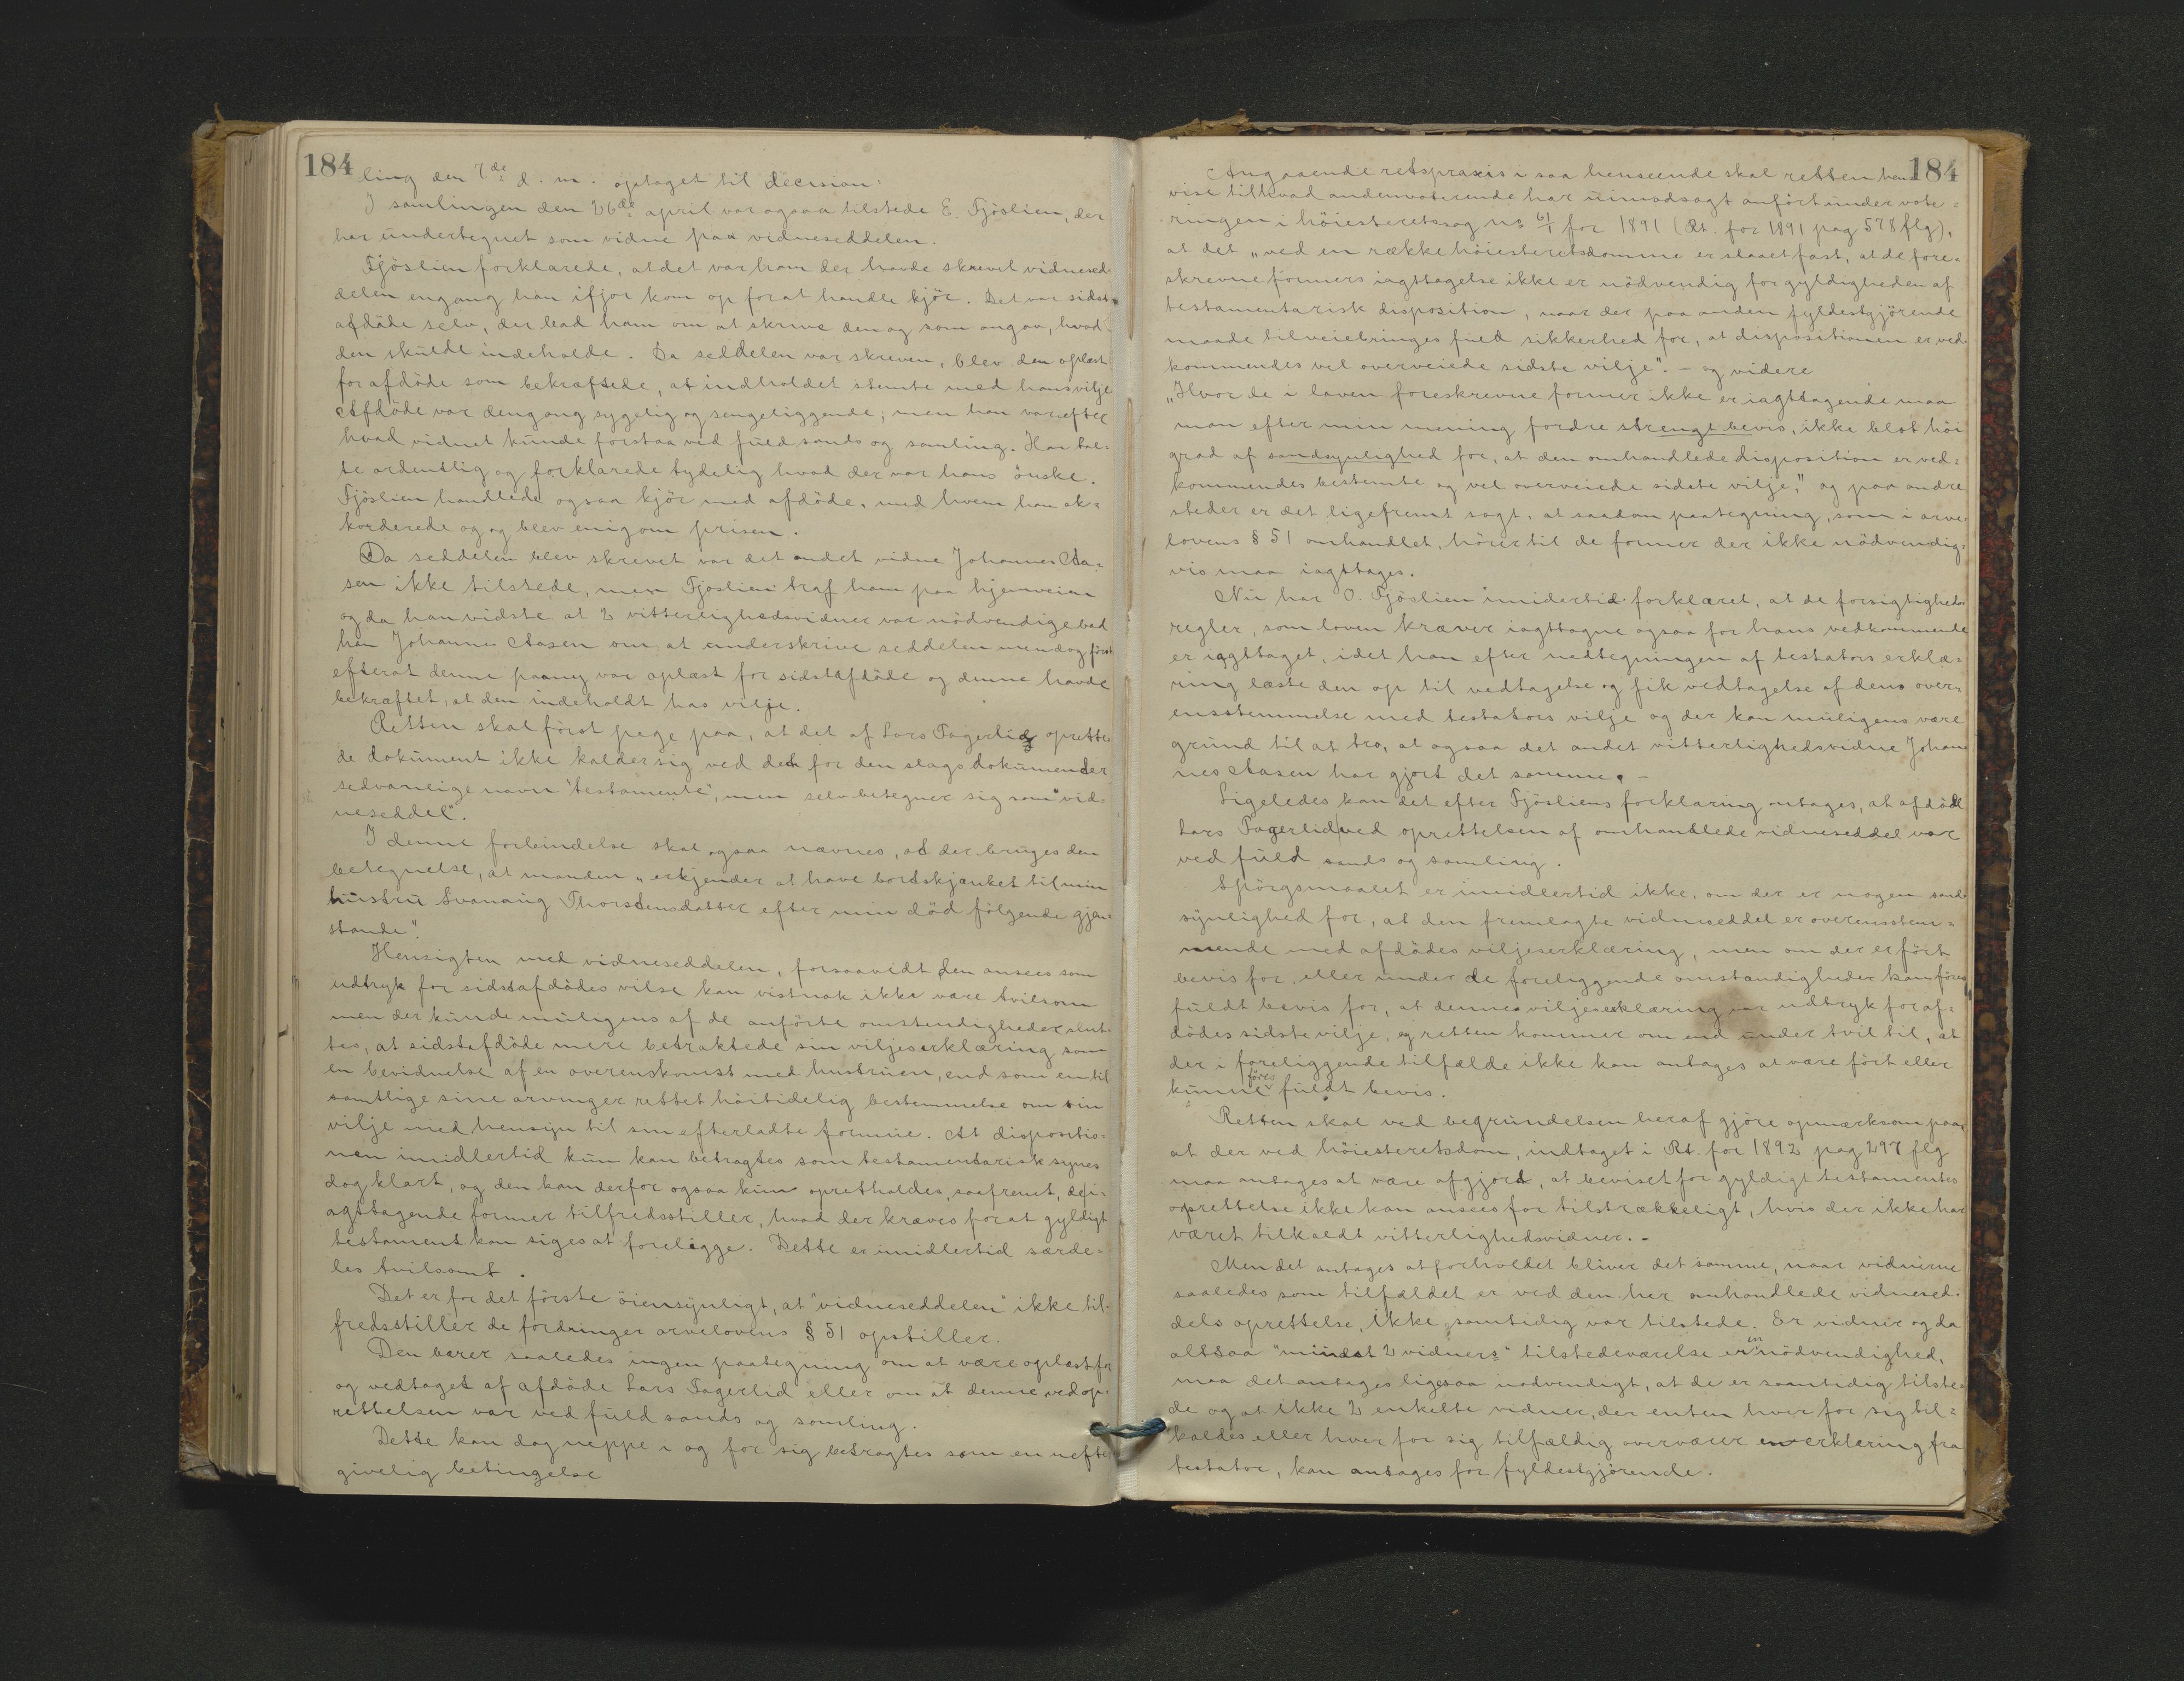 184
ling den 7de d. m. optaget til decision:
I samlingen den 26de april var ogsaa tilstede E. Tjöslien, der
har undertegnet som vidne paa vidneseddelen.
Tjöslien forklarede, at det var ham der havde skrevet vidnesed-
delen engang han ifjor kom op for at handle kjör. Det var sidst
afdöde selv, der bad ham om at skrive den og som angav, hvad
den skulde indeholde. Da seddelen var skreven, blev den oplæst
for afdöde som bekræftede, at indholdet stemte med hans vilje
Afdöde var dengang sygelig og sengeliggende; men han var efter
hvad vidnet kunde forstaa ved fuld sands og samling. Han tal-
te ordentlig og forklarede tydelig hvad der var hans önske.
Tjöslien handlede ogsaa kjör med afdöde, med hvem han ak-
korderede og og blev enig om prisen.
Da seddelen blev skrevet var det andet vidne Johannes Aa-
sen ikke tilstede, men Tjöslien traf ham paa hjemveien
og da han vidste at 2 vitterlighedsvidner var nödvendige bad
han Johannes Aasen om at underskrive seddelen men dog först
efterat denne paany var oplæst for sidstafdöde og denne havde
bekræftet, at den indeholdt has vilje.
Retten skal först pege paa, at det af Lars Fagerlid oprette-
de dokument ikke kalder sig ved det for den slags dokumenter
sedvanlige navn "testamente", men selv betegner sig som "vid-
neseddel".
I denne forbindelse skal ogsaa nævnes, at der bruges den
betegnelse, at manden "erkjender at have bortskjænket til min
hustru Svanaug Thorstensdatter efter min död fölgende gjen-
stande".
Hensigten med vidneseddelen, forsaavidt den ansees som
udtryk for sidstafdödes vilse kan vistnok ikke være tvilsom
men der kunde muligens af de anförte omstendigheder slut-
tes, at sidstafdöde mere betraktede sin viljeserklæring som
en bevidnelse af en overenskomst med hustruen, end som en til
samtlige sine arvinger rettet höitidelig bestemmelse om sin
vilje med hensyn til sin efterladte formue. At dispositio-
nen imidlertid kun kan betragtes som testamentarisk synes
dog klart, og den kan derfor ogsaa kun opretholdes, saafremt, de i-
agttagende former tilfredsstiller, hvad der kræves for at gyldigt
testament kan siges at foreligge. Dette er imidlertid særde-
les tvilsomt.
Det er for det förste öiensynligt, at "vidneseddelen" ikke til-
fredsstiller de fordringer arvelovens § 51 opstiller.
Den bærer saaledes ingen paategning om at være oplæst for
og vedtaget af afdöde Lars Fagerlid eller om at denne ved op-
rettelsen var ved fuld sands og samling.
Dette kan dog neppe i og for sig betragtes som en uefter-
givelig betingelse
184
Angaaende retspraxis i saa henseende skal retten hen-
vise til hvad andenvoterende har uimodsagt anfört under vote-
ringen i höiesteretssag no 61/1 for 1891 (Rt. for 1891 pag 578 flg),
at det "ved en række höiesteretsdomme er slaaet fast, at de fore-
skrevne formers iagttagelse ikke er nödvendig for gyldigheden af
testamentarisk disposition, naar der paa anden fyldestgjörende
maade tilveiebringes fuld sikkerhed for, at dispositionen er ved-
kommendes vel overveiede sidste vilje". - og videre
"Hvor de i loven foreskrevne former ikke er iagttagende maa
man efter min mening fordre strengt bevis, ikke blot höi
grad af sandsynlighed for, at den omhandlede disposition er ved-
kommendes bestemte og vel overveiede sidste vilje," og paa andre
steder er det ligefremt sagt, at saadan paategning, som i arve-
lovens § 51 omhandlet, hörer til de former der ikke nödvendig-
vis maa iagttages.
Nu har O. Tjöslien imidertid forklaret, at de forsigtigheds
regler, som loven kræver iagttagne ogsaa for hans vedkommende
er iagttaget, idet han efter nedtegningen af testators erklæ-
ring læste den op til vedtagelse og fik vedtagelse af dens over-
ensstemmelse med testators vilje og der kan muligens være
grund til at tro, at ogsaa det andet vitterlighedsvidne Johan-
nes Aasen har gjort det samme. -
Ligeledes kan det efter Tjösliens forklaring antages, at afdöde
Lars Fagerlid ved oprettelsen af omhandlede vidneseddel var
ved fuld sands og samling.
Spörgsmaalet er imidlertid ikke, om der er nogen sand-
synlighed for, at den fremlagte vidneseddel er overensstem-
mende med afdödes viljeserklæring, men om der er fört
bevis for, eller under de foreliggende omstandigheder kan föres
fuldt bevis for, at dennes viljeserklæring var udtryk for af-
dödes sidste vilje, og retten kommer om end under tvil til, at
der i foreliggende tilfælde ikke kan antages at være fört eller
kunne föres fuldt bevis.
Retten skal ved begrundelsen heraf gjöre opmærksom paa,
at der ved höiesteretsdom, indtaget i Rt. for 1892 pag 297 flg
maa antages at være afgjort, at beviset for gyldigt testamentes
oprettelse ikke kan ansees for tilstrækkeligt, hvis der ikke har
været tilkaldt vitterlighedsvidner. -
Men det antages at forholdet bliver det samme, naar vidnerne
saaledes som tilfældet er ved den her omhandlede vidnesed-
dels oprettelse, ikke samtidig var tilstede. Er vidner og da
altsaa "mindst 2 vidners" tilstedeværelse en nödvendighed,
maa det antages ligesaa nödvendigt, at de er samtidig tilste-
de og at ikke 2 enkelte vidner, der enten hver for sig til-
kaldes eller hver for sig tilfældig overværer en erklæring fra
testator, kan antages for fyldestgjörende.